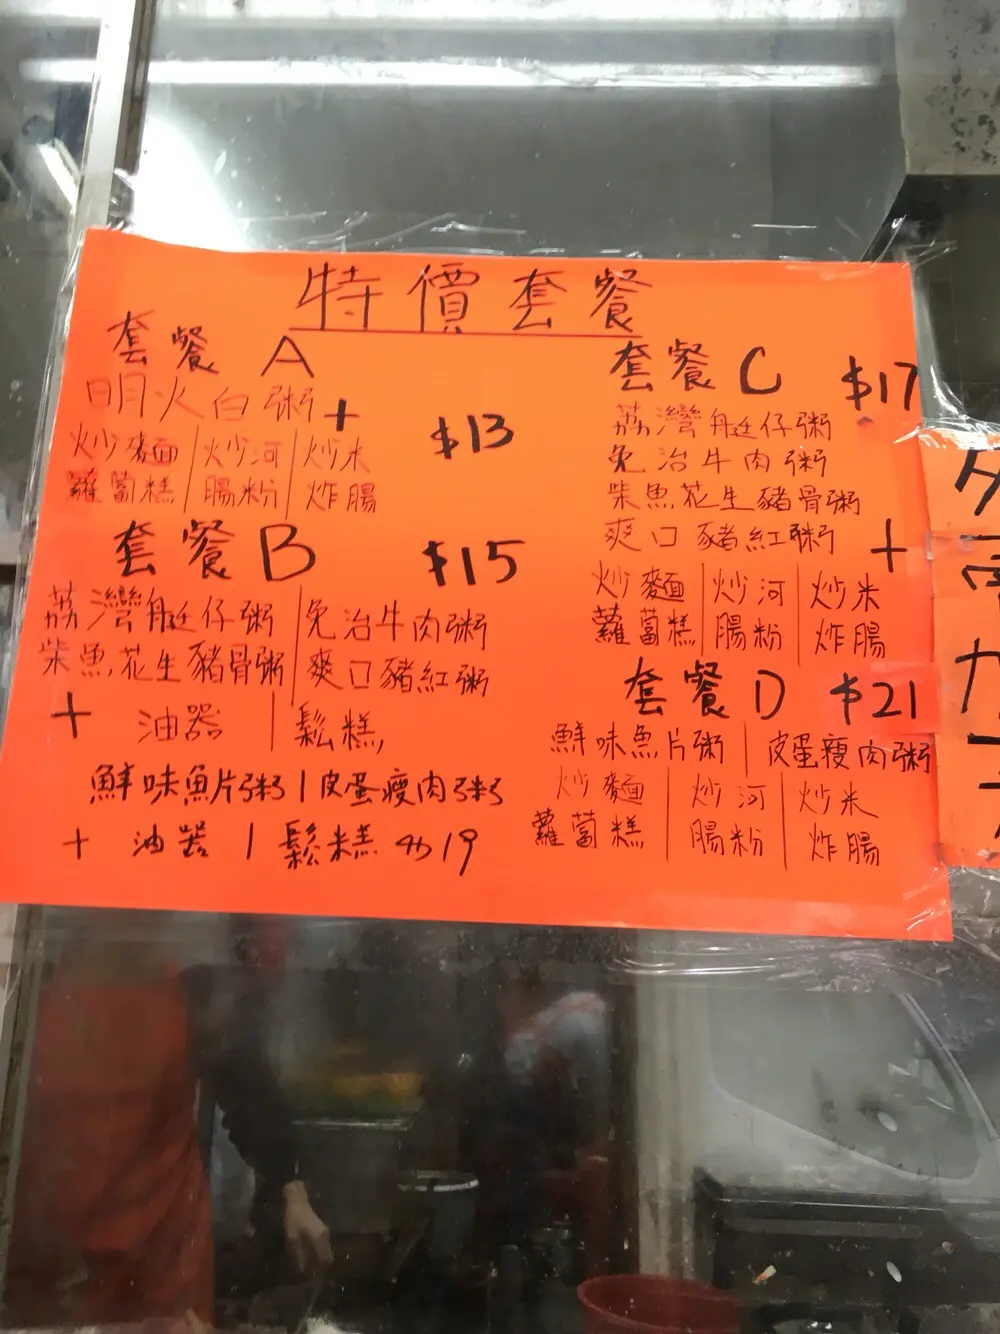 特價套餐
套餐 A
明火白粥 +
$13
炒麵 | 炒河 | 炒米
蘿蔔糕 | 腸粉 | 炸腸
套餐 B
$15
荔灣艇仔粥 | 免治牛肉粥
柴魚花生豬骨粥 | 爽口豬紅粥
+ 油器 | 鬆糕
鮮味魚片粥 | 皮蛋瘦肉粥
+ 油器 | 鬆糕 19
套餐 C
$17
荔灣艇仔粥
免治牛肉粥
柴魚花生豬骨粥
爽口豬紅粥 +
炒麵 | 炒河 | 炒米
蘿蔔糕 | 腸粉 | 炸腸
套餐 D $21
鮮味魚片粥 | 皮蛋瘦肉粥
炒麵 | 炒河 | 炒米
蘿蔔糕 | 腸粉 | 炸腸